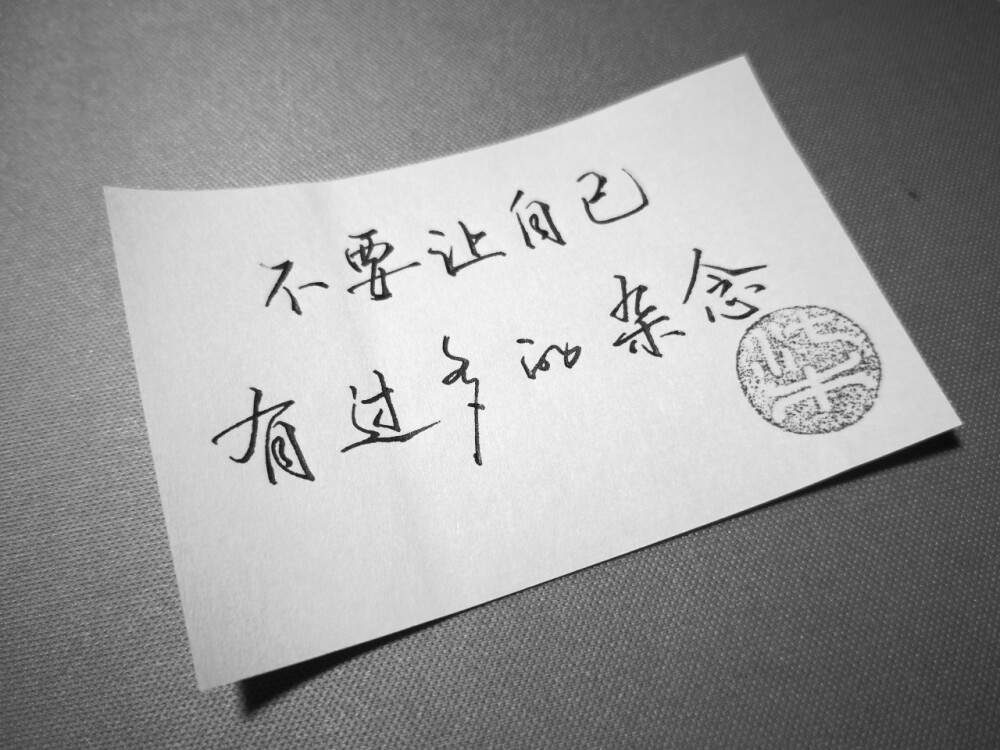 不要让自己
有过多的杂念